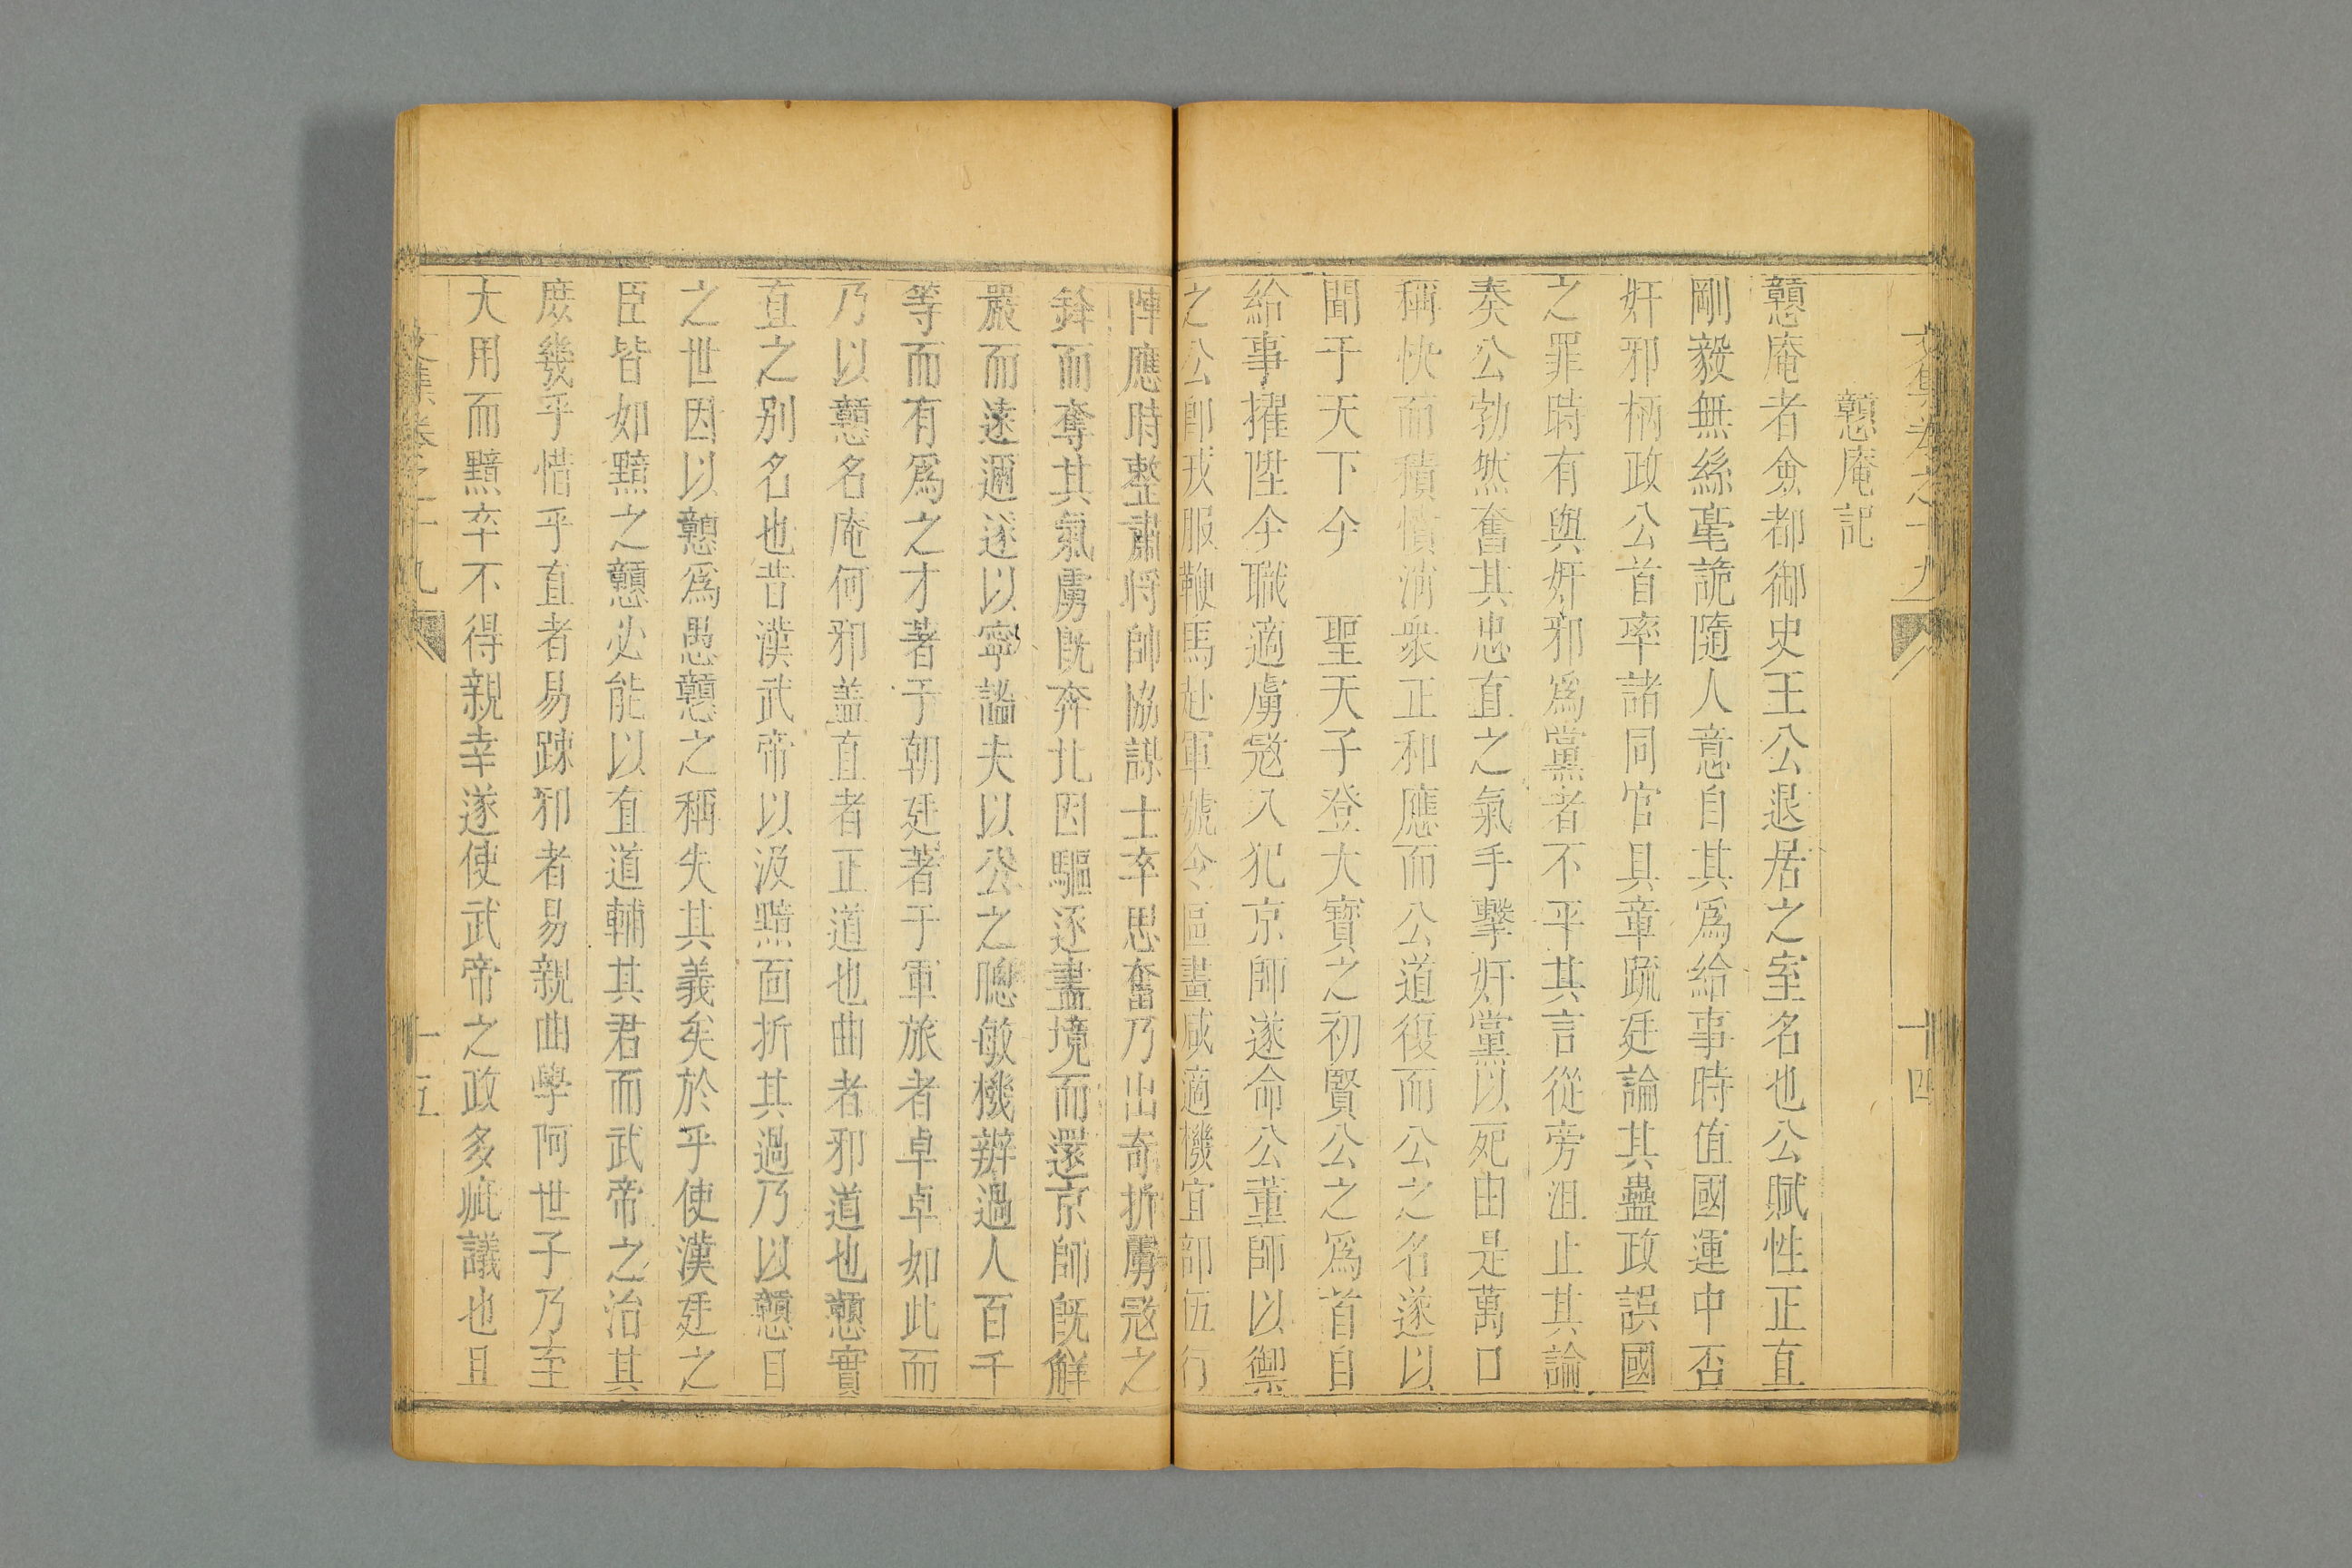 文集卷之十九
十四
戇庵記
戇庵者僉都御史王公退居之室名也公賦性正直
剛毅無絲毫詭隨人意自其爲給事時值國運中否
奸邪柄政公首率諸同官具章疏廷論其蠱政誤國
之罪時有與奸邪爲黨者不平其言從旁沮止其論
奏公勃然奮其忠直之氣手擊奸黨以死由是萬口
稱快而積憤消衆正和應而公道復而公之名遂以
聞于天下今　聖天子登大寶之初賢公之爲首自
給事擢陞今職適虜寇入犯京師遂命公董師以禦
之公卽戎服鞭馬赴軍號令區畫咸適機宜部伍行
陣應時整肅將帥協謀士卒思奮乃出奇折虜寇之
鋒而奪其氣虜旣奔北因驅逐盡境而還京師旣解
嚴而遠邇遂以寧謐夫以公之聰敏機辦過人百千
等而有爲之才著于朝廷著于軍旅者卓卓如此而
乃以戇名庵何邪盖直者正道也曲者邪道也戇實
直之别名也昔漢武帝以汲黯面折其過乃以戇目
之世因以戇爲愚戇之稱失其義矣於乎使漢廷之
臣皆如黯之戇必能以直道輔其君而武帝之治其
庶幾乎惜乎直者易踈邪者易親曲學阿世子乃至
大用而黯卒不得親幸遂使武帝之政多疵議也且
文集卷之十九
十五